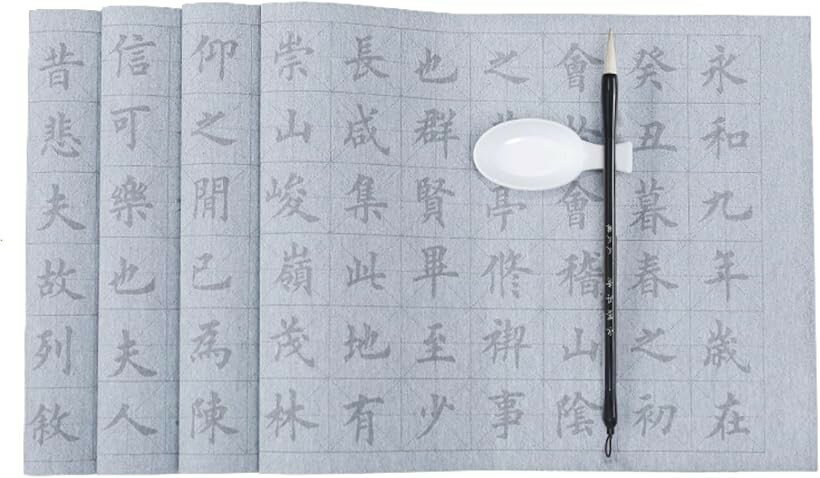 永和九年歲在
癸丑暮春之初
會會稽山陰
之亭脩禊事
也群賢畢至少
長咸集此地有
崇山峻嶺茂林
仰之閒已為陳
信可樂也夫人
昔悲夫故列敘